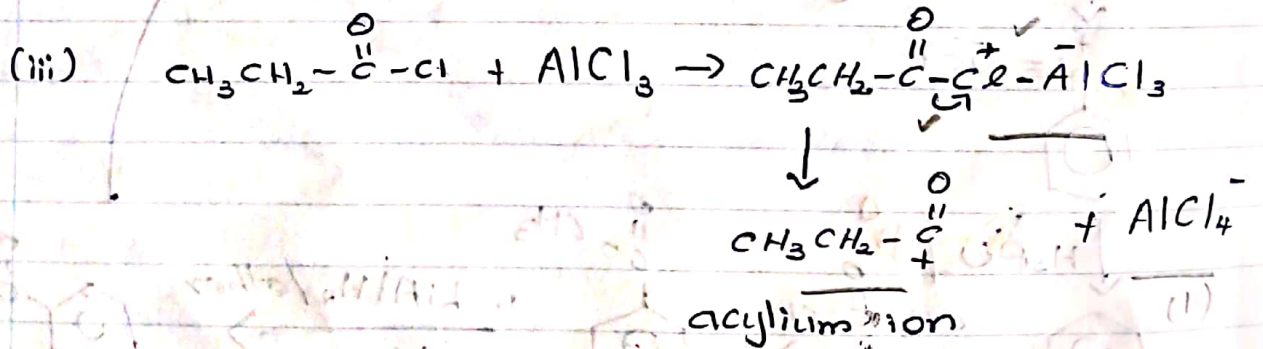 (iii) CH₃CH₂-C-Cl + AlCl₃ → CH₃CH₂-C-Cl⁺-Al⁻Cl₃
O O
↓
O
CH₃CH₂-C⁺ + AlCl₄⁻
acylium ion
(1)